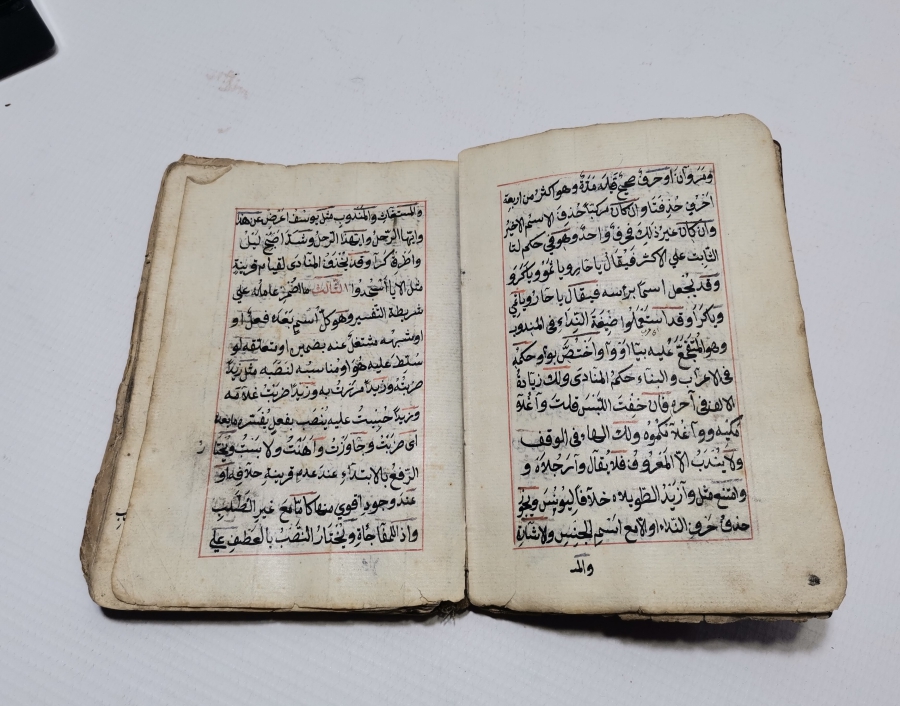 ومروان أو حرف صحيح قبله مدّة وهو أكثر من أربعة
أحرف حذفتا وان كان مركبا حذف الاسم الأخير
وان كان غير ذلك فحرف واحد وهو في حكم
الثابت على الأكثر فيقال يا حار ويا ثمو ويا كرو
وقد يجعل اسما برأسه فيقال يا حار ويا ثمي
ويا كرا وقد استعملوا صيغة النداء في المندوب
وهو المتفجع عليه بيا أو وا واختص بوا وحكمه
في الاعراب والبناء حكم المنادى ولك زيادة
الالف في آخره فان خفت اللبس قلت وا غلا
مكيه ووا غلا مكموه ولك الهاء في الوقف
ولا يندب الا المعروف فلا يقال وا رجلاه و
وامتنع مثل وا زيد الطويلاه خلافا ليونس ويجوز
حذف حرف النداء الا مع اسم الجنس والاشارة
والمد
والمستغاث والمندوب مثل يوسف أعرض عن هذا
وايها الرجل وايهذا الرجل وشذ أصبح ليل
وأطرق كرا وقد يحذف المنادى لقيام قرينة
مثل الا يا اسجدوا الثالث ما أضمر عامله على
شريطة التفسير وهو كل اسم بعده فعل أو
أو شبهه مشتغل عنه بضميره أو متعلقه لو
سلط عليه هو أو مناسبه لنصبه مثل زيدا
ضربته وزيدا مررت به وزيدا ضربت غلامه
وزيدا حبست عليه ينصب بفعل يفسره مابعده
أى ضربت وجاوزت وأهنت ولابست ويختار
الرفع بالابتداء عند عدم قرينة خلافه أو
عند وجود أقوى منها كاما مع غير الطلب
واذا للمفاجاة ويختار النصب بالعطف على